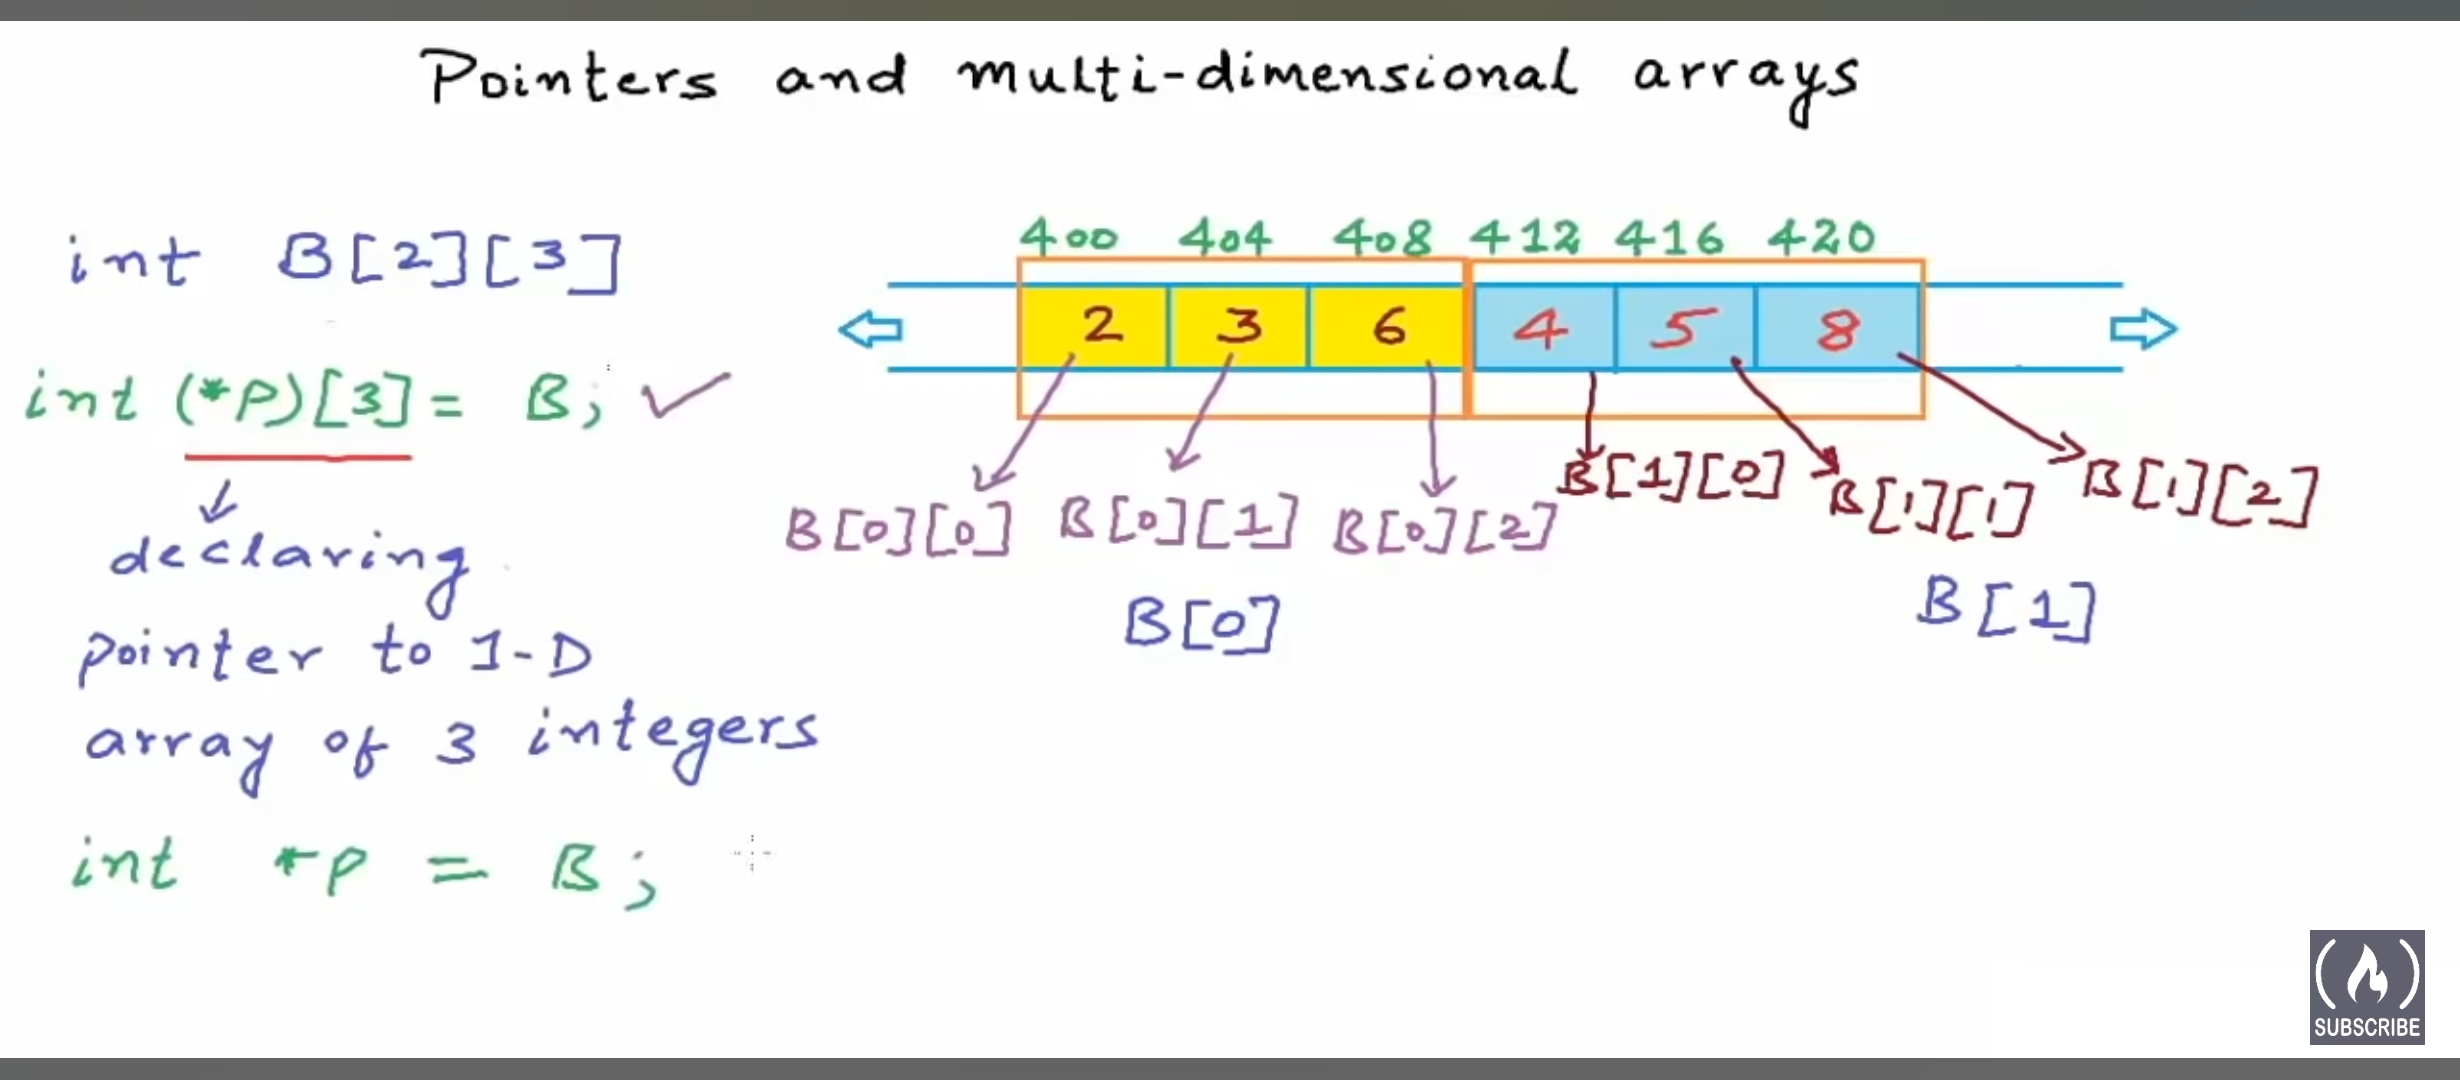 Pointers and multi-dimensional arrays
int B[2][3]
int (*P)[3] = B;
declaring
pointer to 1-D
array of 3 integers
int *P = B;
400 404 408 412 416 420
2 3 6 4 5 8
B[0][0] B[0][1] B[0][2] B[1][0] B[1][1] B[1][2]
B[0] B[1]
SUBSCRIBE